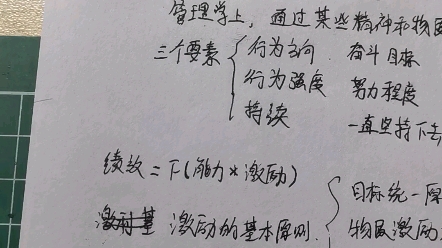 管理学上，通过某些精神和物
三个要素 行为方向 奋斗目标
行为强度 努力程度
持续 一直坚持下去
绩效=F(能力*激励)
激励的基本原则 目标统一原
物质激励